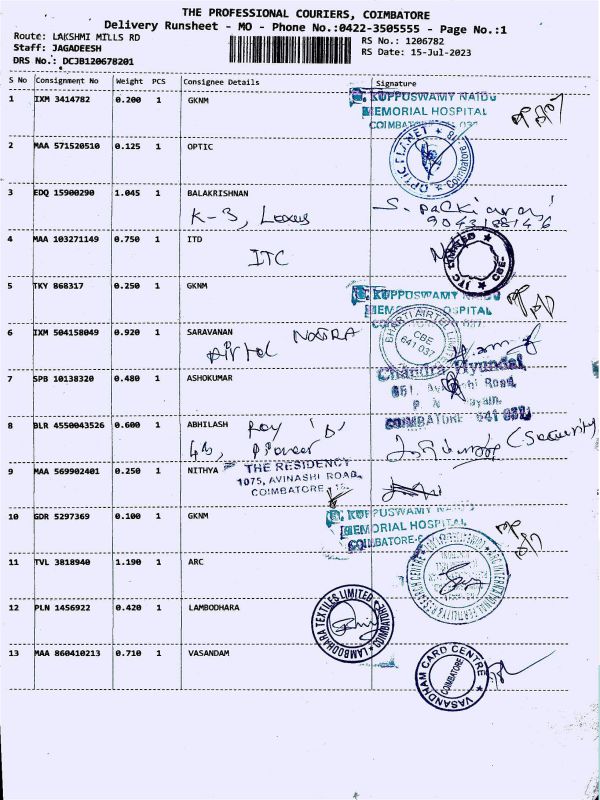 THE PROFESSIONAL COURIERS, COIMBATORE
Delivery Runsheet - MO - Phone No.:0422-3505555 - Page No.:1
Route: LAKSHMI MILLS RD
RS No.: 1206782
Staff: JAGADEESH
RS Date: 15-Jul-2023
DRS No.: DCJB120678201
S No Consignment No Weight PCS Consignee Details Signature
1 IXM 3414782 0.200 1 GKNM
KUPPUSWAMY NAIDU
MEMORIAL HOSPITAL
2 MAA 571520510 0.125 1 OPTIC
OPTIC PLANET
Coimbatore
3 EDQ 15900290 1.045 1 BALAKRISHNAN
K-3, Lexus
9043188146
4 MAA 103271149 0.750 1 ITD
ITC
ITC LIMITED CBE
5 TKY 868317 0.250 1 GKNM
KUPPUSWAMY NAIDU
MEMORIAL HOSPITAL
6 IXM 504158049 0.920 1 SARAVANAN
Airtel
BHARTI AIRTEL LIMITED
CBE
641 037
7 SPB 10138320 0.480 1 ASHOKUMAR
Chandra Hyundai
Road,
COIMBATORE 641 037
8 BLR 4550043526 0.600 1 ABHILASH
Roy 'D'
4B, Pioneer
(Security
9 MAA 569902401 0.250 1 NITHYA
THE RESIDENCY
1075, AVINASHI ROAD,
COIMBATORE - 18.
10 GDR 5297369 0.100 1 GKNM
KUPPUSWAMY NAIDU
MEMORIAL HOSPITAL
COIMBATORE
11 TVL 3818940 1.190 1 ARC
ARC INTERNATIONAL FERTILITY & RESEARCH CENTRE
12 PLN 1456922 0.420 1 LAMBODHARA
LAMBODHARA TEXTILES LIMITED
COIMBATORE
13 MAA 860410213 0.710 1 VASANDAM
VASANDHAM CARD CENTRE
COIMBATORE